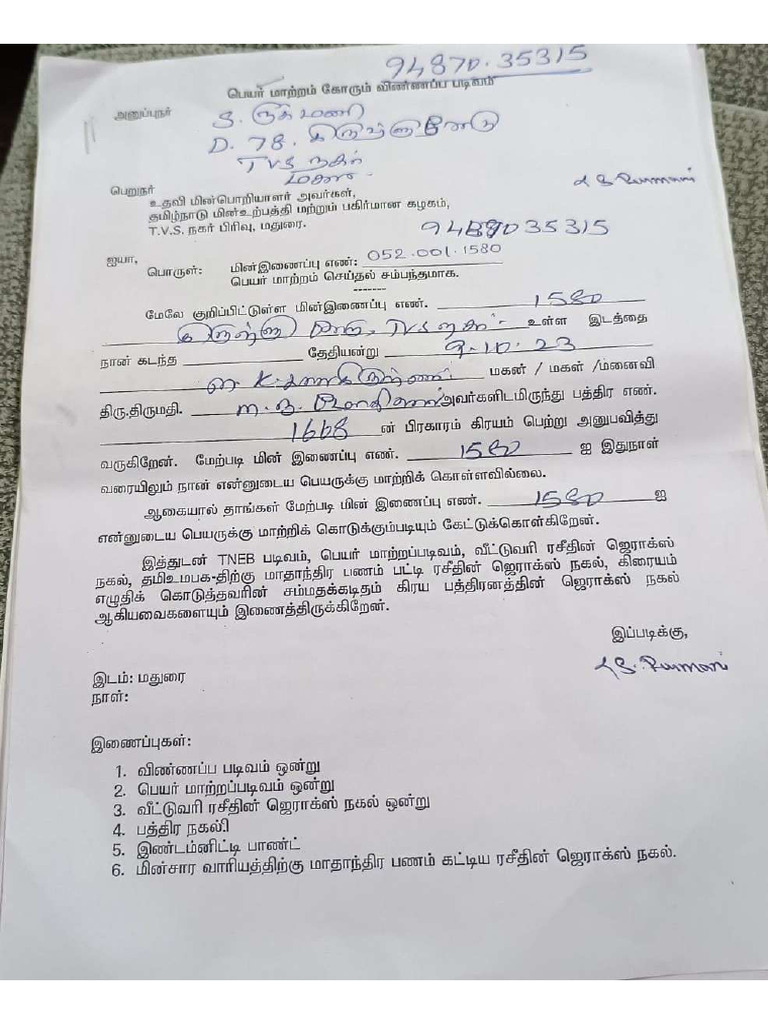 94870.35315
பெயர் மாற்றம் கோரும் விண்ணப்ப படிவம்
அனுப்புநர்
S. ருக்மணி
D. 78.
TVS நகர்
பெறுநர்
உதவி மின்பொறியாளர் அவர்கள்,
தமிழ்நாடு மின்உற்பத்தி மற்றும் பகிர்மான கழகம்,
T.V.S. நகர் பிரிவு, மதுரை.
9487035315
ஐயா,
பொருள்: மின்இணைப்பு எண்: 052.001.1580
பெயர் மாற்றம் செய்தல் சம்பந்தமாக.
-------
மேலே குறிப்பிட்டுள்ள மின்இணைப்பு எண். 1580
TVS நகர் உள்ள இடத்தை
நான் கடந்த தேதியன்று 9.10.23
மகன் / மகள் /மனைவி
திரு.திருமதி. அவர்களிடமிருந்து பத்திர எண்.
1668 ன் பிரகாரம் கிரயம் பெற்று அனுபவித்து
வருகிறேன். மேற்படி மின் இணைப்பு எண். 1580 ஐ இதுநாள்
வரையிலும் நான் என்னுடைய பெயருக்கு மாற்றிக் கொள்ளவில்லை.
ஆகையால் தாங்கள் மேற்படி மின் இணைப்பு எண். 1580 ஐ
என்னுடைய பெயருக்கு மாற்றிக் கொடுக்கும்படியும் கேட்டுக்கொள்கிறேன்.
இத்துடன் TNEB படிவம், பெயர் மாற்றப்படிவம், வீட்டுவரி ரசீதின் ஜெராக்ஸ்
நகல், தமிஉமபக-திற்கு மாதாந்திர பணம் பட்டி ரசீதின் ஜெராக்ஸ் நகல், கிரையம்
எழுதிக் கொடுத்தவரின் சம்மதக்கடிதம் கிரய பத்திரனத்தின் ஜெராக்ஸ் நகல்
ஆகியவைகளையும் இணைத்திருக்கிறேன்.
இப்படிக்கு,
இடம்: மதுரை
நாள்:
இணைப்புகள்:
1. விண்ணப்ப படிவம் ஒன்று
2. பெயர் மாற்றப்படிவம் ஒன்று
3. வீட்டுவரி ரசீதின் ஜெராக்ஸ் நகல் ஒன்று
4. பத்திர நகல்
5. இண்டம்னிட்டி பாண்ட்
6. மின்சார வாரியத்திற்கு மாதாந்திர பணம் கட்டிய ரசீதின் ஜெராக்ஸ் நகல்.